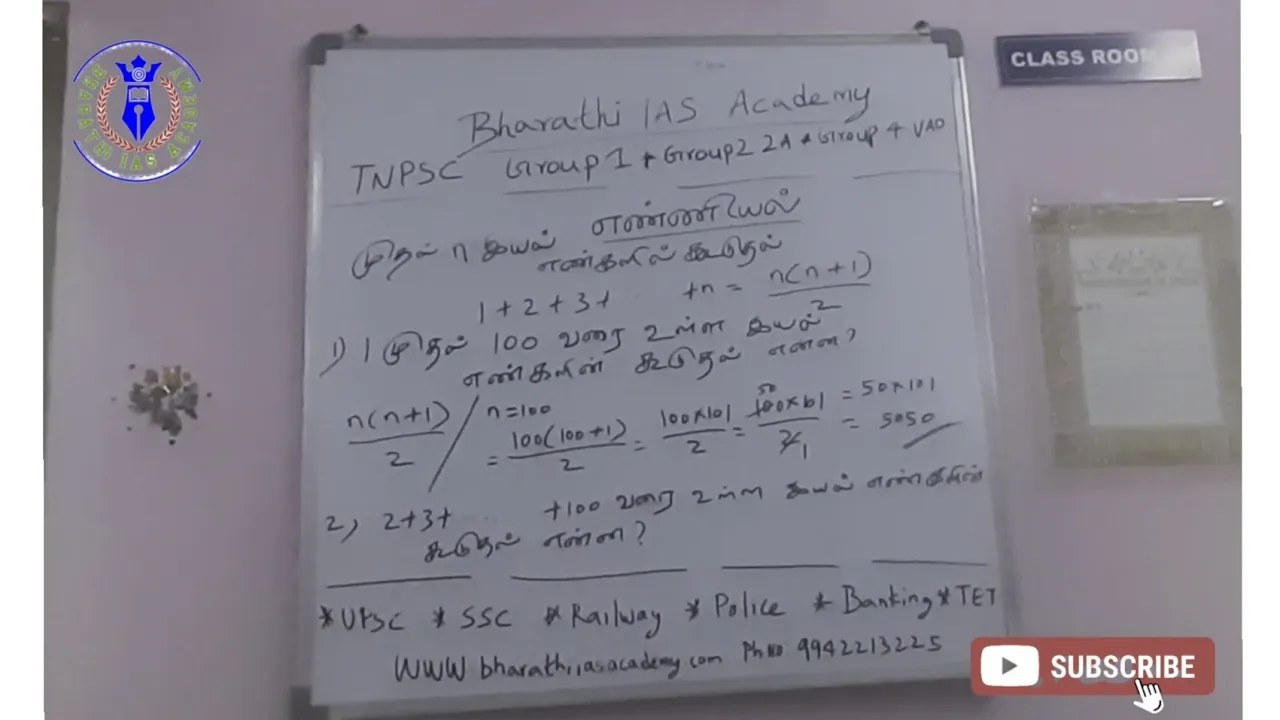 BHARATHI IAS ACADEMY
CLASS ROOM
Bharathi IAS Academy
TNPSC Group 1 * Group 2 2A * Group 4 VAO
எண்ணியல்
முதல் n இயல்
எண்களில் கூடுதல்
1 + 2 + 3 + ... + n = n(n+1)/2
1) 1 முதல் 100 வரை உள்ள இயல்
எண்களின் கூடுதல் என்ன?
n(n+1)/2 / n=100
= 100(100+1)/2 = 100×101/2 = 100×101/2 50 1 = 50×101
= 5050
2) 2+3+ ... +100 வரை உள்ள இயல் எண்களின்
கூடுதல் என்ன?
*UPSC * SSC * Railway * Police * Banking * TET
WWW.bharathiiasacademy.com Ph No 9942213225
SUBSCRIBE